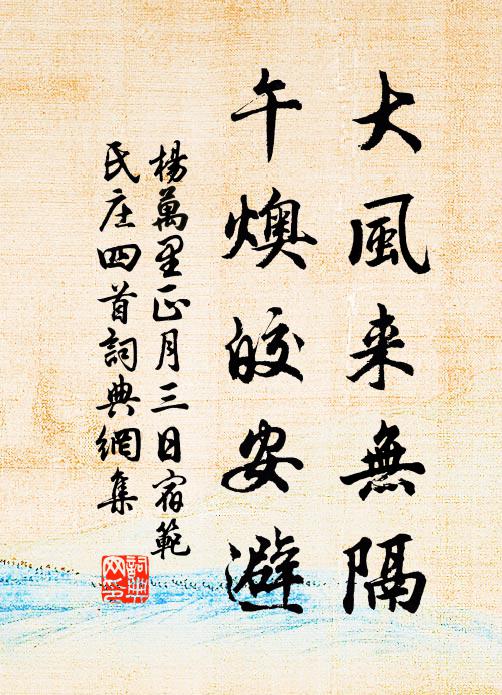 大風来無隔
午燠皎安避
楊萬里正月三日宿範
氏庄四首詞典網集